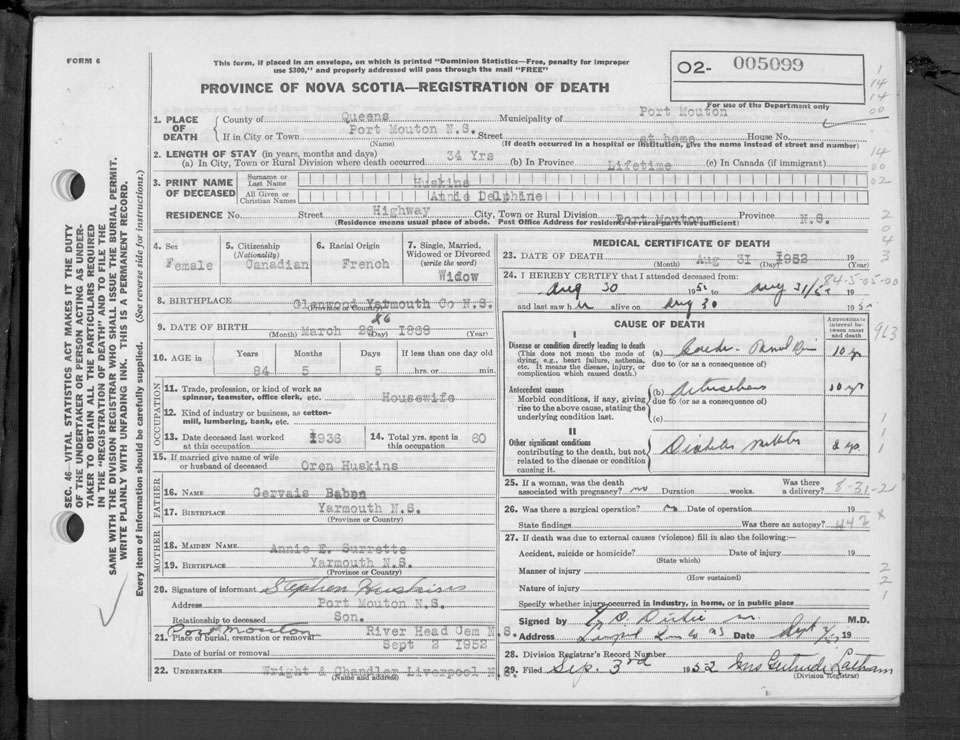 FORM 6
This form, if placed in an envelope, on which is printed "Dominion Statistics—Free, penalty for improper
use $300," and properly addressed will pass through the mail "FREE"
PROVINCE OF NOVA SCOTIA—REGISTRATION OF DEATH
O2- 005099
For use of the Department only
1. PLACE OF DEATH
County of Queens Municipality of Port Mouton
If in City or Town Port Mouton N.S. Street at home House No.
(Name) (If death occurred in a hospital or institution, give the name instead of street and number)
2. LENGTH OF STAY (in years, months and days)
(a) In City, Town or Rural Division where death occurred 34 Yrs (b) In Province Lifetime (c) In Canada (if immigrant)
3. PRINT NAME OF DECEASED
Surname or Last Name Huskins
All Given or Christian Names Annie Delphine
RESIDENCE No. Street Highway City, Town or Rural Division Port Mouton Province N.S.
(Residence means usual place of abode. Post Office Address for residents in rural parts not sufficient)
4. Sex Female
5. Citizenship (Nationality) Canadian
6. Racial Origin French
7. Single, Married, Widowed or Divorced (write the word) Widow
8. BIRTHPLACE Glenwood Yarmouth Co N.S.
(Province or Country)
9. DATE OF BIRTH March 26 1868
(Month) (Day) (Year)
10. AGE in Years 84 Months 5 Days 5 If less than one day old hrs. or min.
OCCUPATION
11. Trade, profession, or kind of work as spinner, teamster, office clerk, etc. Housewife
12. Kind of industry or business, as cotton-mill, lumbering, bank, etc.
13. Date deceased last worked at this occupation 1936
14. Total yrs. spent in this occupation 60
15. If married give name of wife or husband of deceased Oren Huskins
FATHER
16. NAME Gervais Baben
17. BIRTHPLACE Yarmouth N.S.
(Province or Country)
MOTHER
18. MAIDEN NAME Annie E. Surrette
19. BIRTHPLACE Yarmouth N.S.
(Province or Country)
20. Signature of informant Stephen Huskins
Address Port Mouton N.S.
Relationship to deceased Son.
Port Mouton
21. Place of burial, cremation or removal River Head Cem N.S.
Date of burial or removal Sept 2 1952
22. UNDERTAKER Wright & Chandler Liverpool N.S.
(Name and address)
MEDICAL CERTIFICATE OF DEATH
23. DATE OF DEATH Aug 31 1952
(Month) (Day) (Year)
24. I HEREBY CERTIFY that I attended deceased from:
Aug 30 1952 to Aug 31/52 19
84-5-05-00
and last saw her alive on Aug 30 1952
CAUSE OF DEATH
Approximate interval between onset and death
Disease or condition directly leading to death
(This does not mean the mode of dying, e.g., heart failure, asthenia, etc. It means the disease, injury, or complication which caused death.)
(a) 10 yr
due to (or as a consequence of)
Antecedent causes
Morbid conditions, if any, giving rise to the above cause, stating the underlying condition last.
(b) 10 yr
due to (or as a consequence of)
(c)
II
Other significant conditions
contributing to the death, but not related to the disease or condition causing it.
Diabetes Mellitus yrs.
25. If a woman, was the death associated with pregnancy? no Duration weeks. Was there a delivery?
8-31-2
26. Was there a surgical operation? no Date of operation 19
State findings Was there an autopsy?
442
27. If death was due to external causes (violence) fill in also the following:
Accident, suicide or homicide? Date of injury 19
(State which)
Manner of injury
(How sustained)
Nature of injury
Specify whether injury occurred in industry, in home, or in public place
Signed by M.D.
Address Date Sept 19
28. Division Registrar's Record Number
29. Filed Sep. 3rd 1952 Mrs Gertrude Latham
(Division Registrar)
SEC. 46—VITAL STATISTICS ACT MAKES IT THE DUTY
OF THE UNDERTAKER OR PERSON ACTING AS UNDER-
TAKER TO OBTAIN ALL THE PARTICULARS REQUIRED
IN THE "REGISTRATION OF DEATH" AND TO FILE THE
SAME WITH THE DIVISION REGISTRAR WHO SHALL ISSUE THE BURIAL PERMIT.
WRITE PLAINLY WITH UNFADING INK. THIS IS A PERMANENT RECORD.
Every item of information should be carefully supplied. (See reverse side for instructions.)